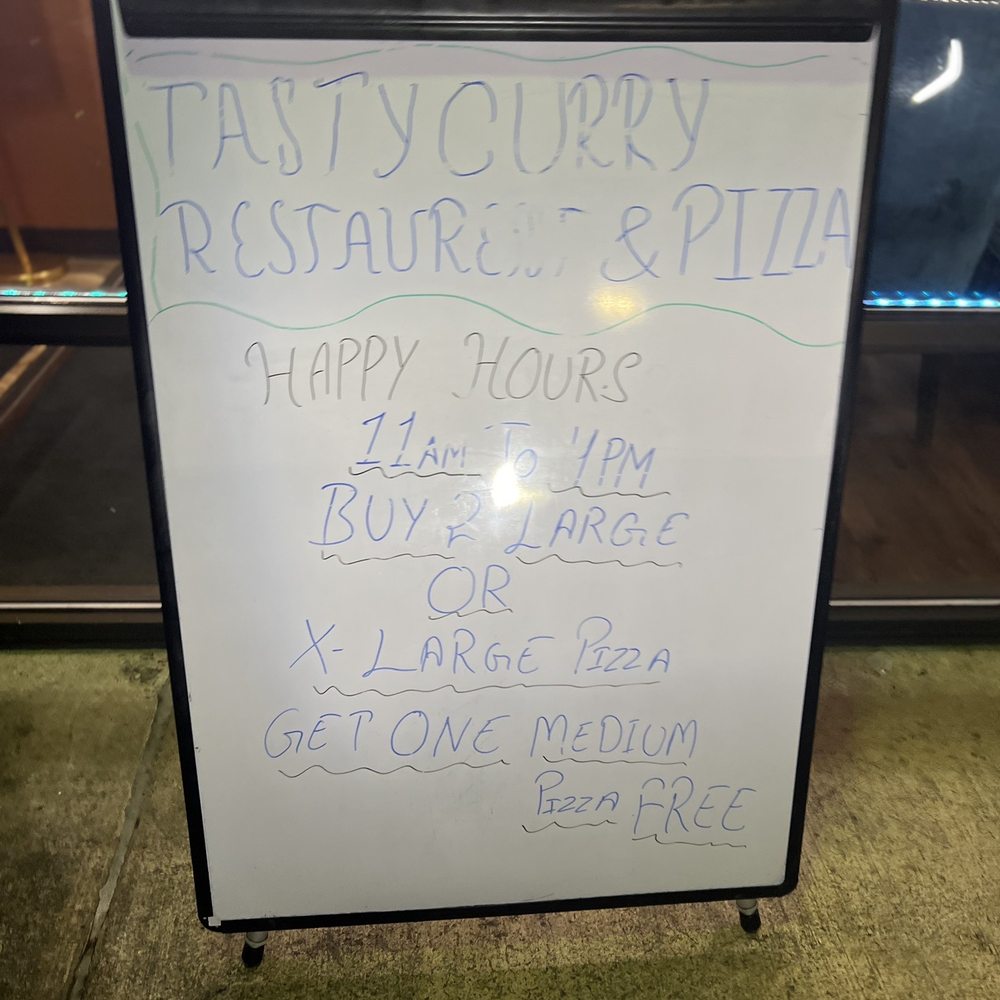 TASTY CURRY
RESTAURENT & PIZZA
HAPPY HOURS
11AM TO 4PM
BUY 2 LARGE
OR
X-LARGE PIZZA
GET ONE MEDIUM
PIZZA FREE